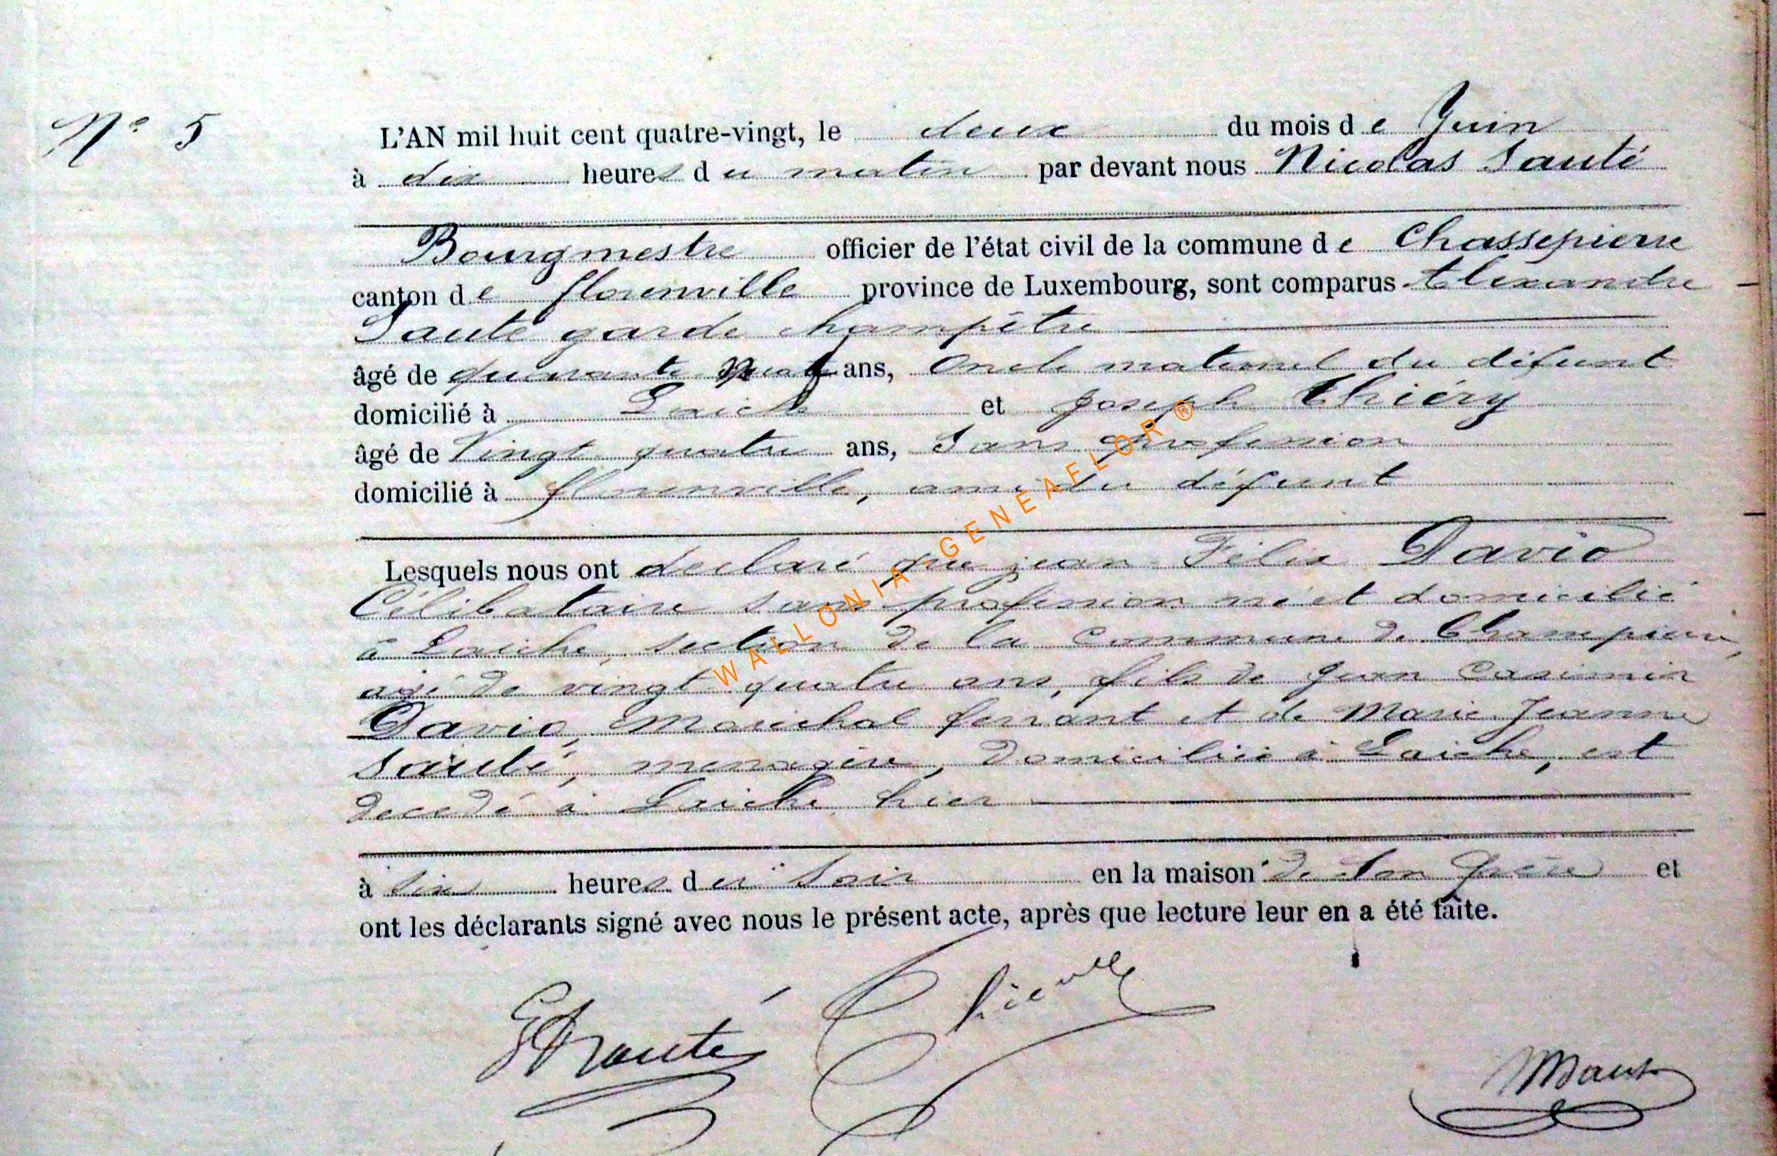 N° 5
L'AN mil huit cent quatre-vingt, le deux du mois de Juin
à dix heures du matin par devant nous Nicolas Sauté
Bourgmestre officier de l'état civil de la commune de Chassepierre
canton de florenville province de Luxembourg, sont comparus Alexandre
Sauté garde champêtre
âgé de quarante quatre ans, oncle maternel du défunt
domicilié à Laiche et Joseph Thiéry
âgé de Vingt quatre ans, Sans profession
domicilié à florenville, ami du défunt
Lesquels nous ont declaré que jean Félix David
Célibataire sans profession né et domicilié
à Laiche, section de la commune de Chassepierre,
agé de vingt quatre ans, fils de Jean Casimir
David, Maréchal ferrant et de Marie Jeanne
Sauté, menagère, domiciliés à Laiche, est
decedé à Laiche hier
à six heures du soir en la maison de son père et
ont les déclarants signé avec nous le présent acte, après que lecture leur en a été faite.
Sauté
WALLONIA GENEAFLOR ®